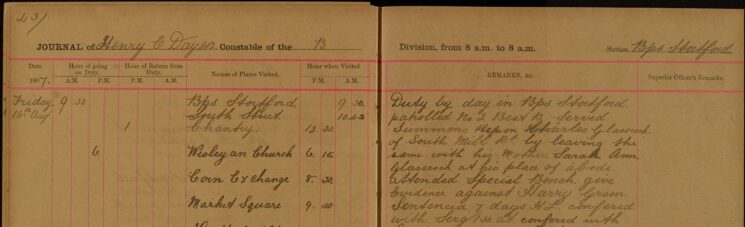 431
JOURNAL of Henry C Dayes. Constable of the B Division, from 8 a.m. to 8 a.m. Section Bps Stortford
Date. Hour of going on Duty. Hour of Return from Duty. Names of Places Visited. Hour when Visited REMARKS, &c. Superior Officer's Remarks.
1907. A.M. P.M. A.M. P.M. P.M. A.M.
Friday 9 30 Bps Stortford 9. 30. Duty by day in Bps Stortford.
16th Aug South Street patrolled No 2 Beat B. Served
1 Chantry. 12. 30 Summons upon Charles Glasscock
of South Mill Rd by leaving the
6 Wesleyan Church 6. 15 same with his Mother Sarah Ann
Glasscock at his place of abode
Corn Exchange 8. 30 attended Special Bench give
Evidence against Harry Green
Market Square 9. 30 Sentenced 7 days H.L. confered
with Serg at confered with